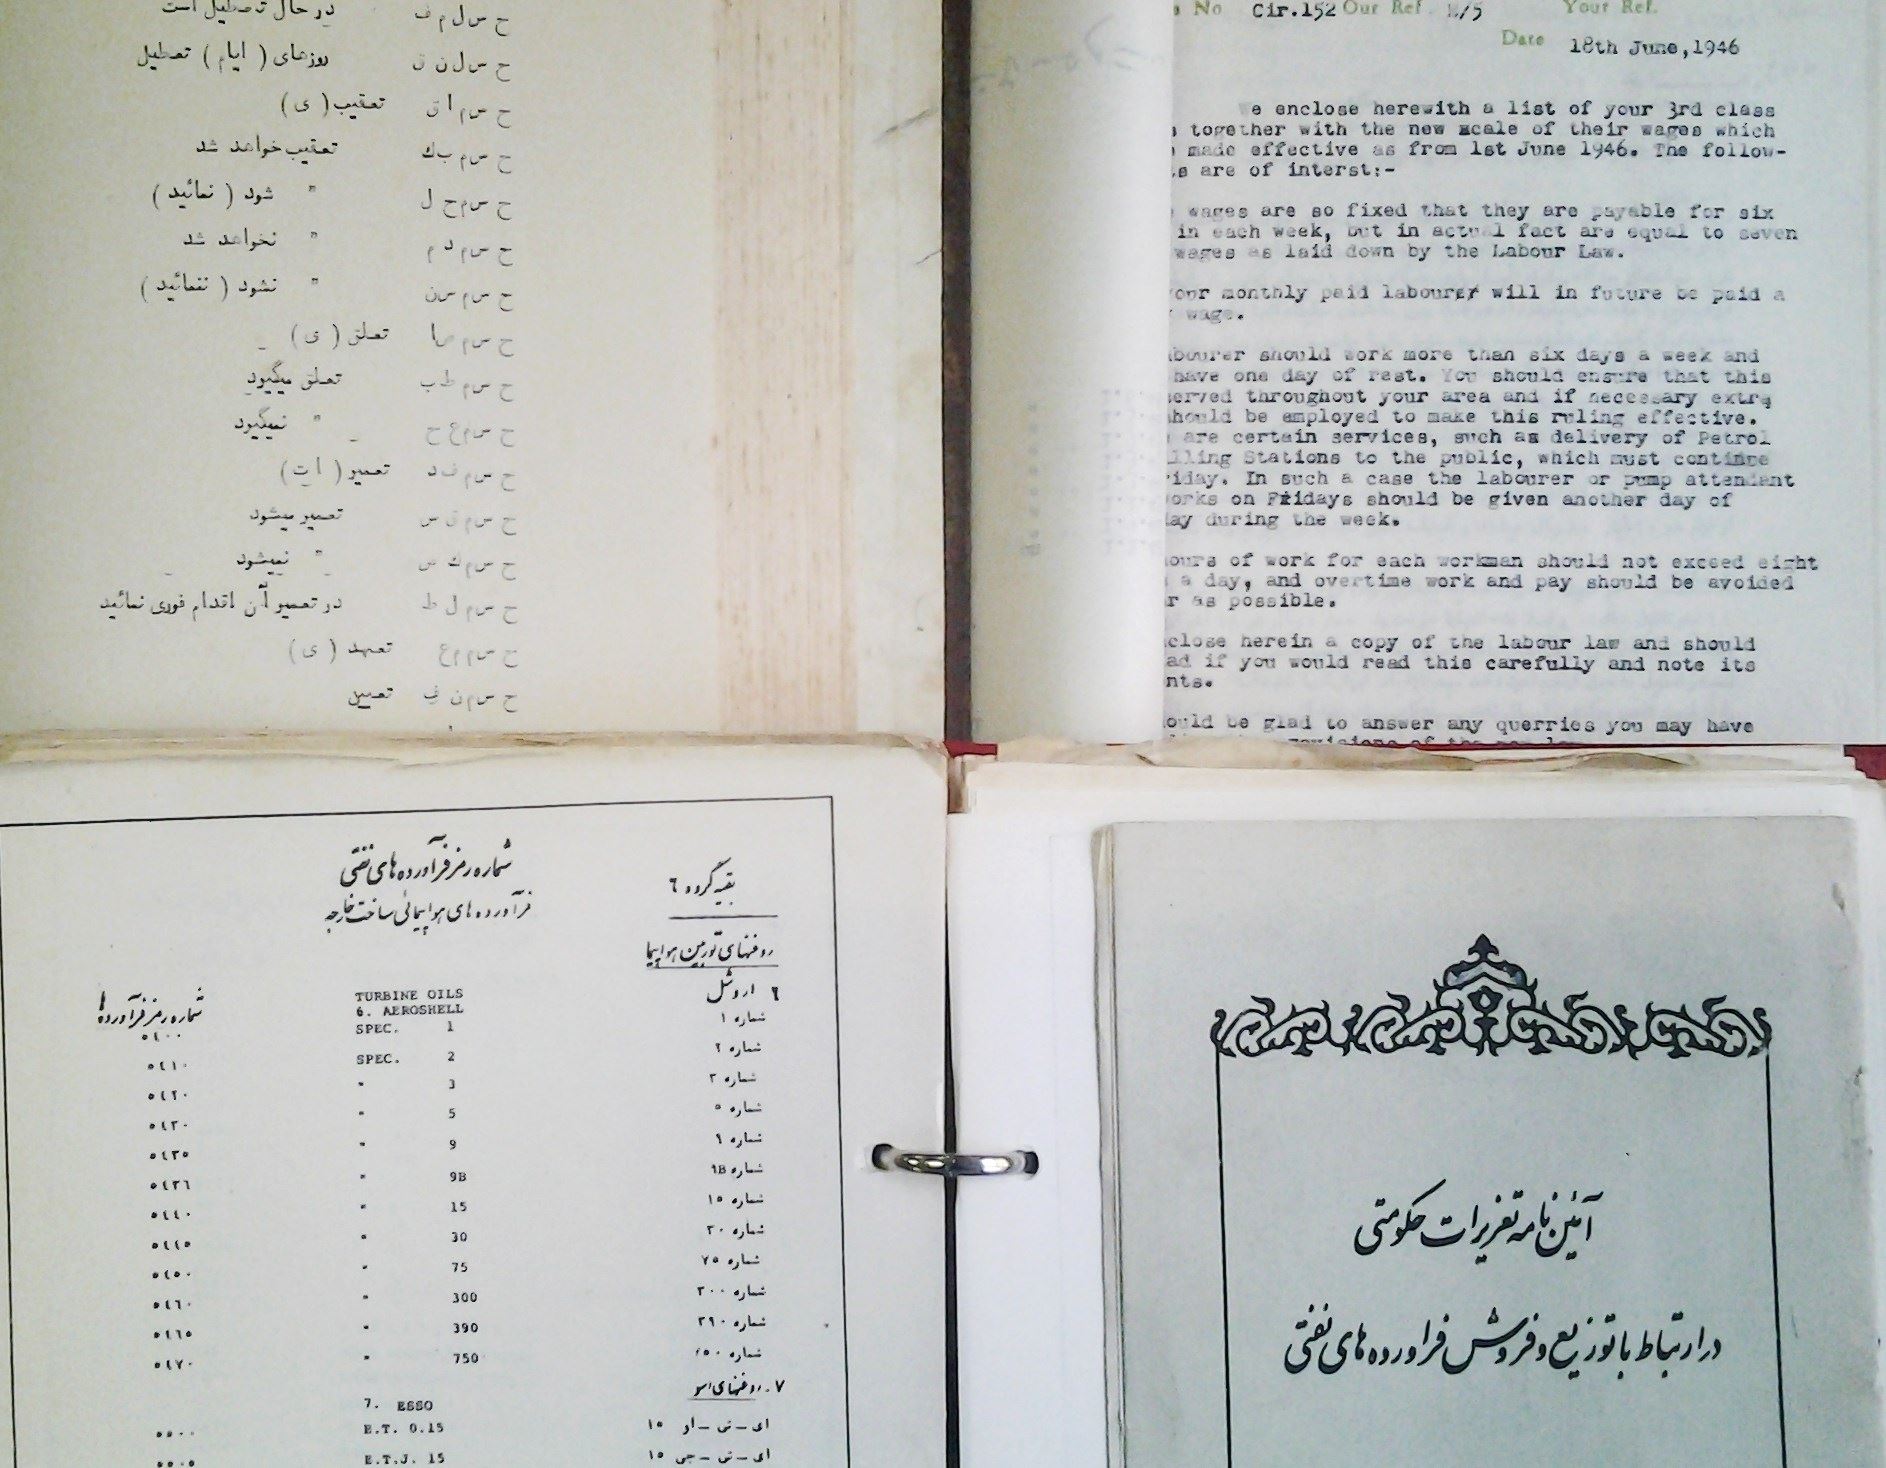 در حال تعطیل است ح س ل م ف
روزهای ( ایام ) تعطیل ح س ل ن ق
تعقیب ( ی ) ح س م ا ق
تعقیب خواهد شد ح س م ب ك
" شود ( نمائید ) ح س م ح ل
" نخواهد شد ح س م د م
" نشود ( ننمائید ) ح س م س ن
تعلق ( ی ) ح س م
تعلق میگیرد ح س م ط ب
" نمیگیرد ح س م ع ح
تعمیر ( ات ) ح س م ف د
تعمیر میشود ح س م ق س
" نمیشود ح س م ك ص
در تعمیر آن اقدام فوری نمائید ح س م ل ط
تعهد ( ی ) ح س م م ع
تعیین ح س م ن ف
No Cir.152 Our Ref. E/5 Your Ref.
Date 18th June,1946
We enclose herewith a list of your 3rd class
together with the new scale of their wages which
made effective as from 1st June 1946. The follow-
are of interst:-
wages are so fixed that they are payable for six
in each week, but in actual fact are equal to seven
wages as laid down by the Labour Law.
our monthly paid labourer will in future be paid a
wage.
bourer should work more than six days a week and
have one day of rest. You should ensure that this
erved throughout your area and if necessary extra
hould be employed to make this ruling effective.
are certain services, such as delivery of Petrol
lling Stations to the public, which must continue
riday. In such a case the labourer or pump attendant
orks on Fridays should be given another day of
ay during the week.
ours of work for each workman should not exceed eight
a day, and overtime work and pay should be avoided
r as possible.
close herein a copy of the labour law and should
ad if you would read this carefully and note its
nts.
ould be glad to answer any querries you may have
provisions of the new law
شماره رمز فرآورده های نفتی
بقیه گروه ٦
فرآورده های هواپیمائی ساخت خارجه
روغنهای توربین هواپیما
شماره رمز فرآورده ها TURBINE OILS ٦ اروشل
6. AEROSHELL
٥٤٠٠ SPEC. 1 شماره ١
٥٤١٠ SPEC. 2 شماره ٢
٥٤٢٠ " 3 شماره ٣
٥٤٣٠ " 5 شماره ٥
٥٤٣٥ " 9 شماره ٩
٥٤٣٦ " 9B شماره ٩B
٥٤٤٠ " 15 شماره ١٥
٥٤٤٥ " 30 شماره ٣٠
٥٤٥٠ " 75 شماره ٧٥
٥٤٦٠ " 300 شماره ٣٠٠
٥٤٦٥ " 390 شماره ٣٩٠
٥٤٧٠ " 750 شماره ٧٥٠
٧ـ روغنهای اسو
7. ESSO
٥٥٠٠ E.T. 0.15 ای ـ تی ـ او ١٥
٥٥٠٥ E.T.J. 15 ای ـ تی ـ جی ١٥
آئین نامه تعزیرات حکومتی
در ارتباط با توزیع و فروش فراورده های نفتی